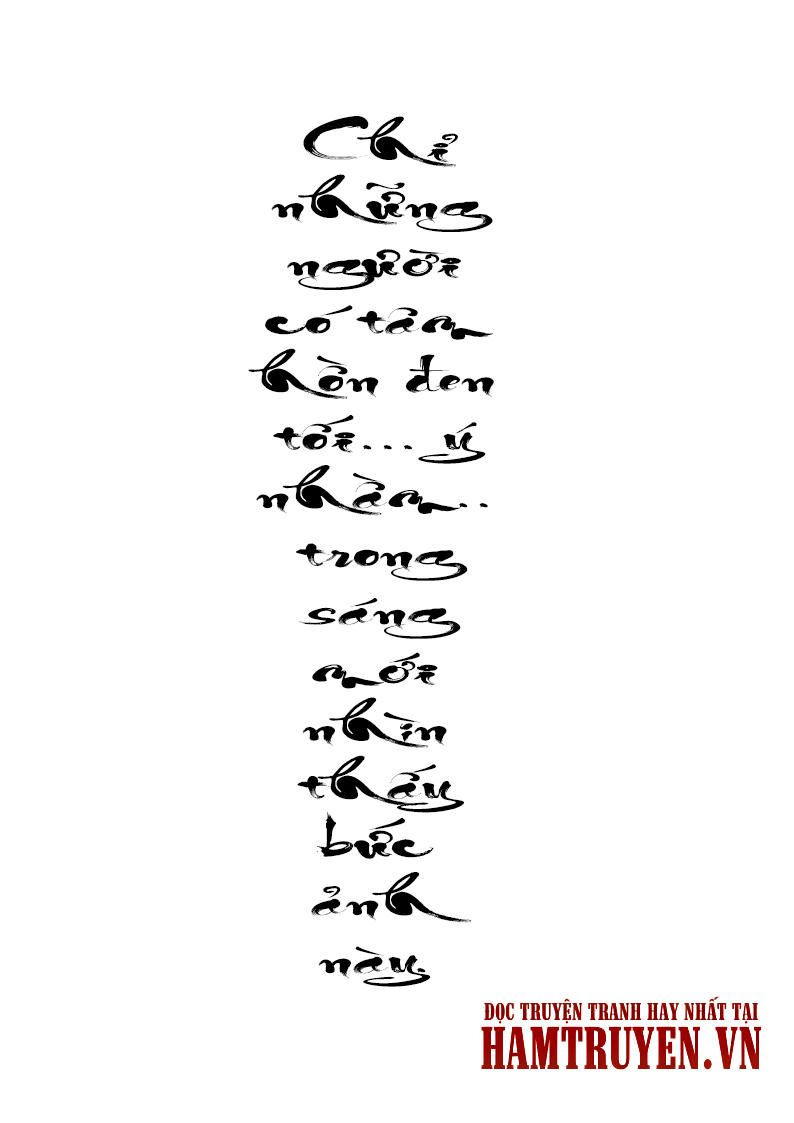 Chỉ
những
người
có tâm
hồn đen
tối... ý
nhầm..
trong
sáng
mới
nhìn
thấy
bức
ảnh
này.
ĐỌC TRUYỆN TRANH HAY NHẤT TẠI
HAMTRUYEN.VN